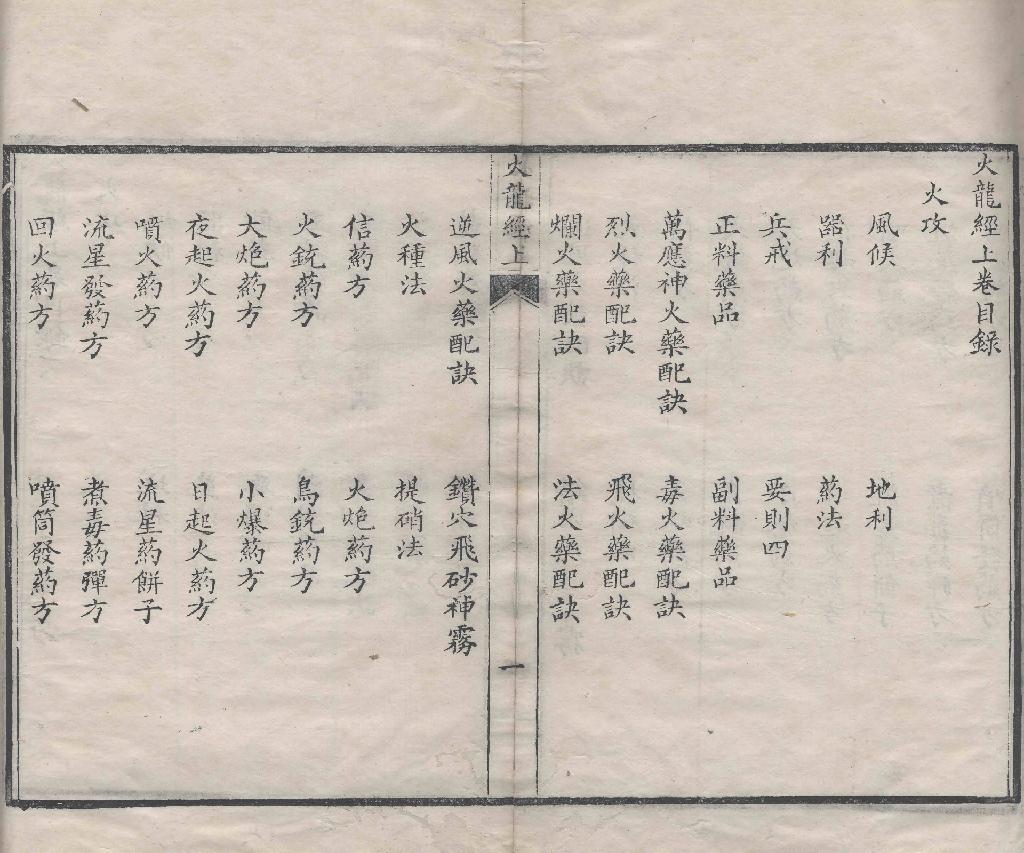 火龍經上卷目録
火攻
風候 地利
器利 葯法
兵戒 要則四
正料藥品 副料藥品
萬應神火藥配訣 毒火藥配訣
烈火藥配訣 飛火藥配訣
爛火藥配訣 法火藥配訣
火龍經上
一
逆風火藥配訣 鑽穴飛砂神霧
火種法 提硝法
信葯方 火炮葯方
火銃葯方 鳥銃葯方
大炮葯方 小爆葯方
夜起火葯方 日起火葯方
噴火葯方 流星葯餅子
流星發葯方 煮毒葯彈方
回火葯方 噴筒發葯方